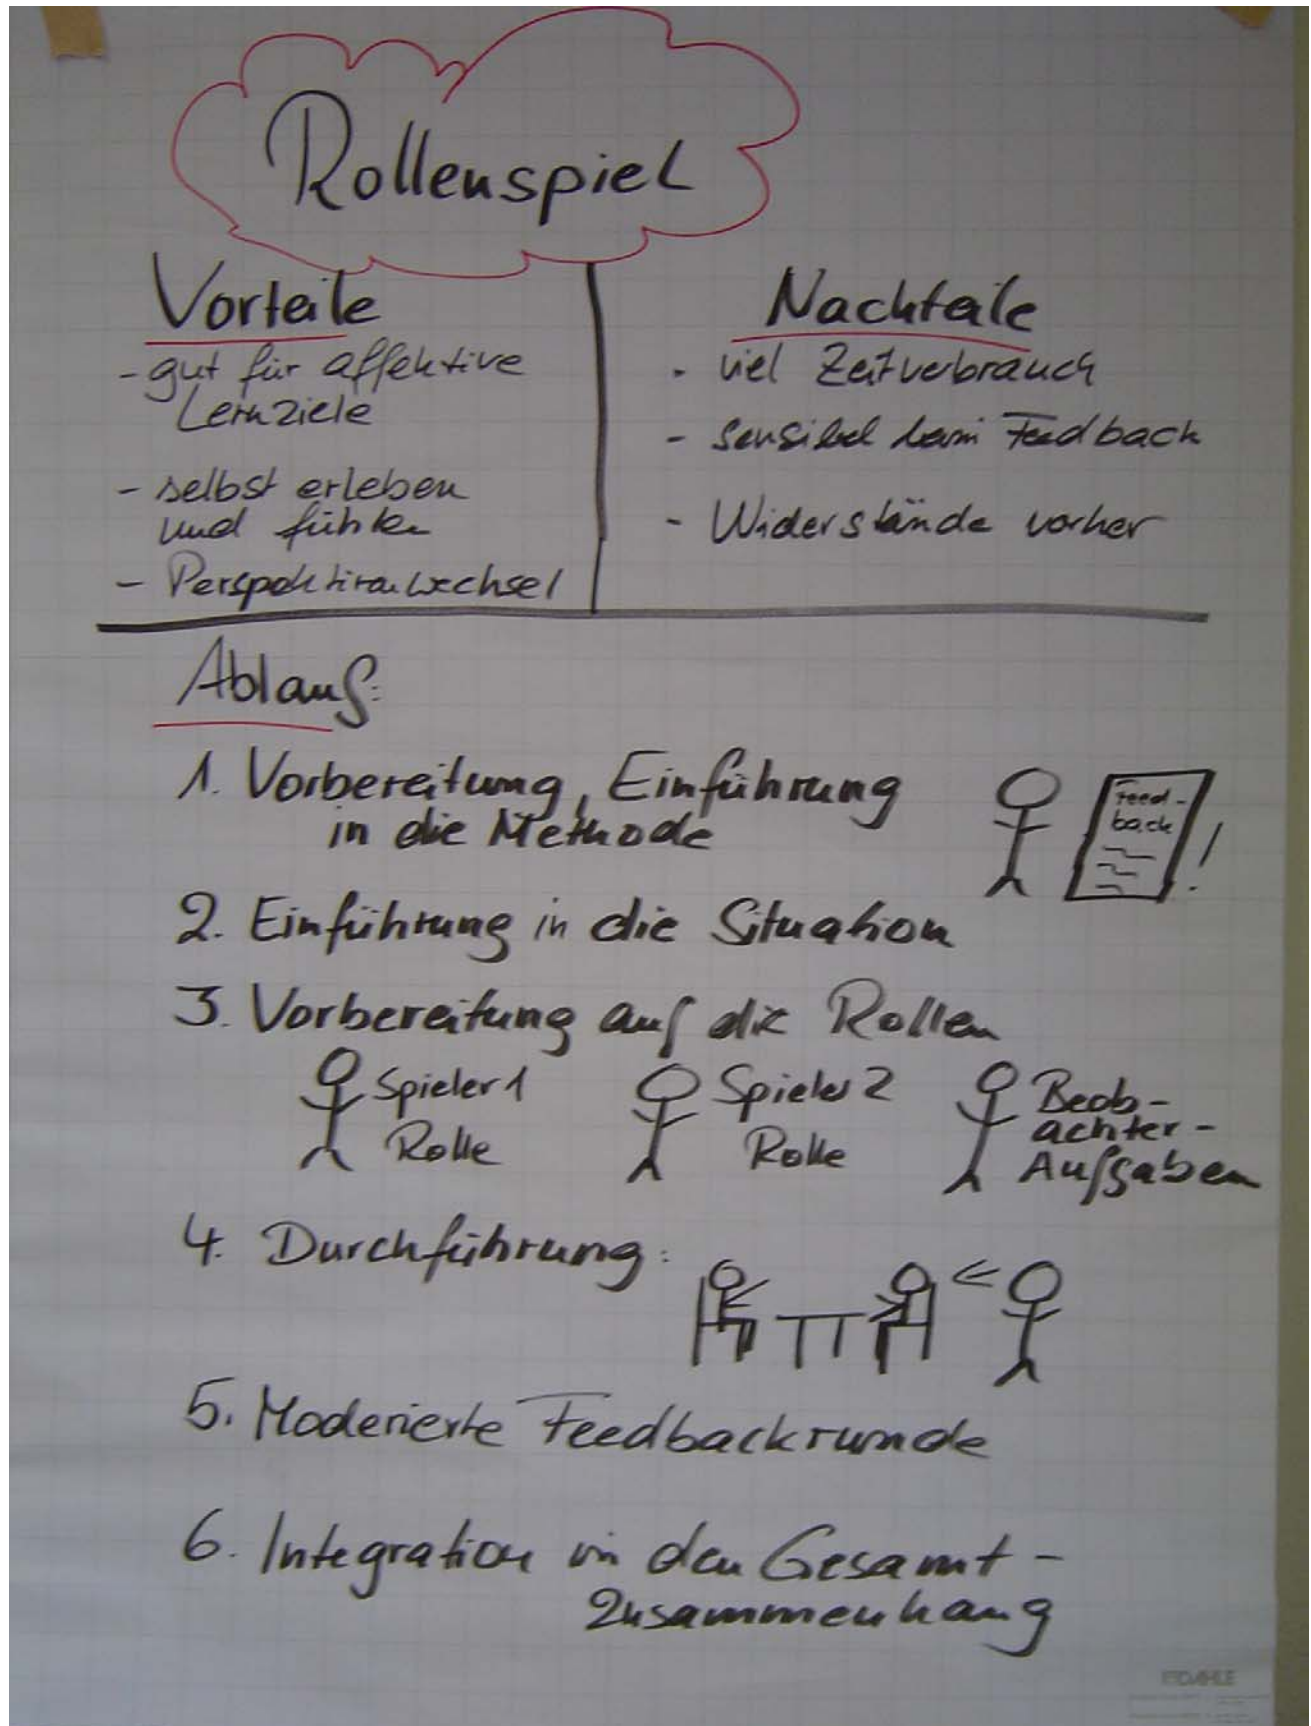 Rollenspiel
Vorteile
- gut für affektive
Lernziele
- selbst erleben
und fühlen
- Perspektivenwechsel
Nachteile
- viel Zeitverbrauch
- sensibel beim Feedback
- Widerstände vorher
Ablauf:
1. Vorbereitung, Einführung
in die Methode
Feed-
back
!
2. Einführung in die Situation
3. Vorbereitung auf die Rollen
Spieler 1
Rolle
Spieler 2
Rolle
Beob-
achter-
Aufgaben
4. Durchführung:
5. Moderierte Feedbackrunde
6. Integration in den Gesamt-
zusammenhang
DAHLE